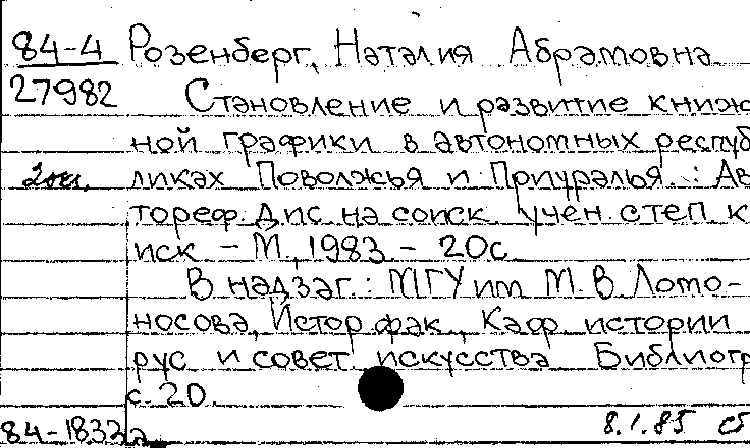 84-4 Розенберг, Наталия Абрамовна
27982 Становление и развитие книж
ной графики в автономных респуб
2 экз. ликах Поволжья и Приуралья : Ав
тореф. дис. на соиск учен. степ к
иск - М., 1983 - 20с
В надзаг.: МГУ им М.В. Ломо-
носова, Истор фак., Каф истории
рус и совет искусства Библиогр
с. 20.
84-1833а 8.1.85